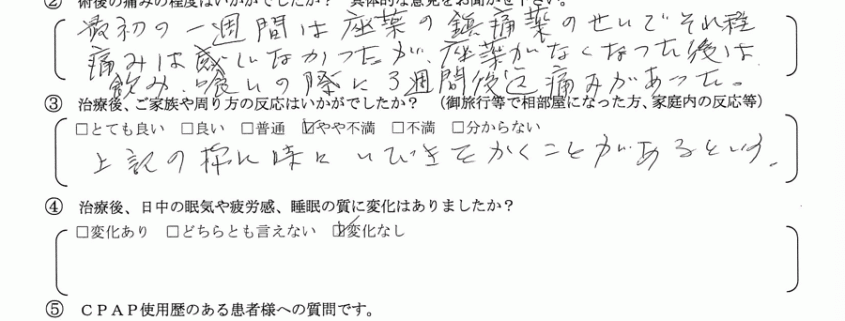 ② 術後の痛みの程度はいかがでしたか？ 具体的な意見をお聞かせ下さい。
最初の一週間は座薬の鎮痛薬のせいでそれ程
痛みは感じなかったが、座薬がなくなった後は
飲み、喰いの際に3週間後迄痛みがあった。
③ 治療後、ご家族や周り方の反応はいかがでしたか？ （御旅行等で相部屋になった方、家庭内の反応等）
□とても良い □良い □普通 ☑やや不満 □不満 □分からない
上記の様に時々いびきをかくことがあるという。
④ 治療後、日中の眠気や疲労感、睡眠の質に変化はありましたか？
□変化あり □どちらとも言えない ☑変化なし
⑤ ＣＰＡＰ使用歴のある患者様への質問です。